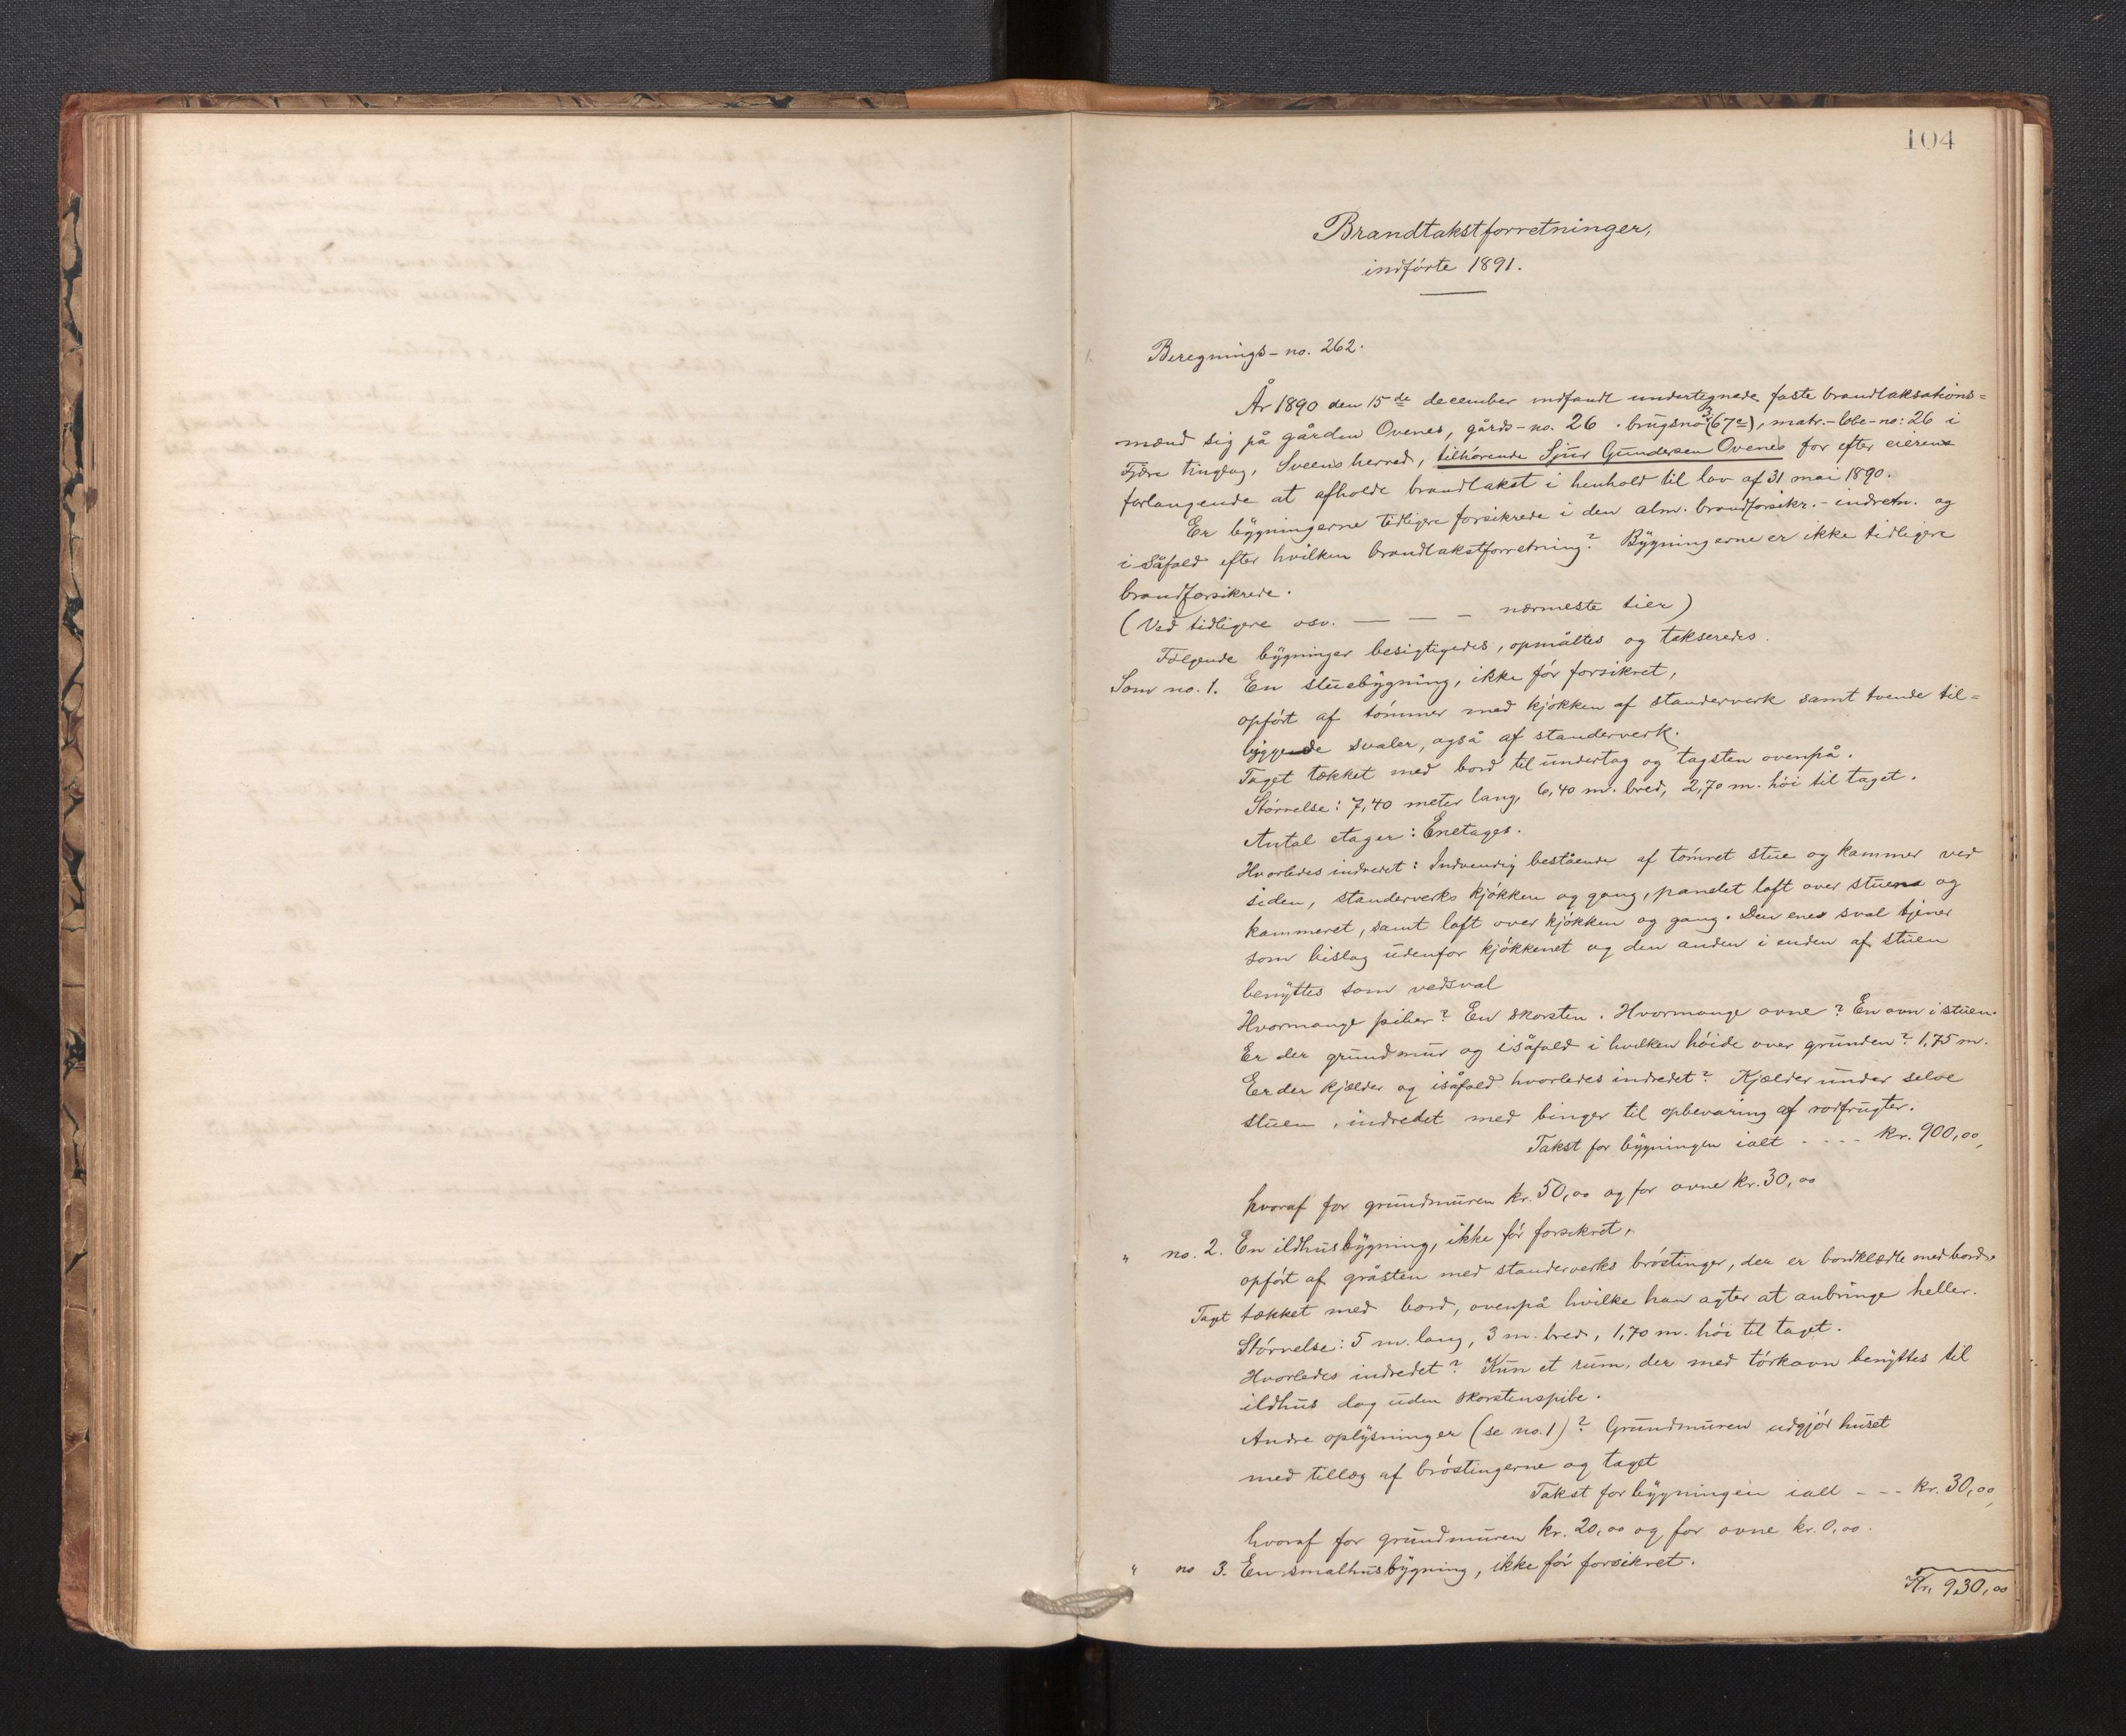 104
Brandtakstforretninger,
indførte 1891.
Beregnings-no. 262.
År 1890 den 15de december indfandt undertegnede faste brandtaksations=
mænd sig på gården Ovenes, gårds-no. 26. brugsno 3 (67c), matr.-løbe-no: 26 i
Fjære tinglag, Sveens herred, tilhørende Sjur Gundersen Ovenes for efter eierens
forlangende at afholde brandtakst i henhold til lov af 31 mai 1890.
Er bygningerne tidligere forsikrede i den alm. brandforsikr.-indretn. og
i såfald efter hvilken brandtakstforretning? Bygningerne er ikke tidligere
brandforsikrede.
(Ved tidligere osv. — — — nærmeste tier)
Følgende bygninger besigtigedes, opmåltes og takseredes.
Som no. 1. En stuebygning, ikke før forsikret,
opført af tømmer med kjøkken af standerverk samt tvende til=
byggende svaler, også af standerverk.
Taget tækket med bord til undertag og tagsten ovenpå.
Størrelse: 7,40 meter lang, 6,40 m. bred, 2,70 m. høi til taget.
Antal etager: Enetages.
Hvorledes indredet: Indvendig bestående af tømret stue og kammer ved
siden, standerverks kjøkken og gang, panelet loft over stuen og
kammeret, samt loft over kjøkken og gang. Den ene sval tjener
som bislag udenfor kjøkkenet og den anden i enden af stuen
benyttes som vedsval
Hvormange piber? En skorsten. Hvormange ovne? En ovn i stuen.
Er der grundmur og isåfald i hvilken høide over grunden? 1,75 m.
Er der kjælder og isåfald hvorledes indredet? Kjælder under selve
stuen, indredet med binger til opbevaring af rodfrugter.
Takst for bygningen ialt - - - - kr. 900,00,
hvoraf for grundmuren kr. 50,00 og for ovne kr. 30,00
" no. 2. En ildhusbygning, ikke før forsikret,
opført af gråsten med standerverks brøstinger, der er bordklædte med bord.
Taget tækket med bord, ovenpå hvilke han agter at anbringe heller.
Størrelse: 5 m. lang, 3 m. bred, 1,70 m. høi til taget.
Hvorledes indredet? Kun et rum, der med tørkovn benyttes til
ildhus dog uden skorstenspibe.
Andre oplysninger (se no. 1)? Grundmuren udgjør huset
med tillæg af brøstingerne og taget
Takst for bygningen ialt - - - kr. 30,00,
hvoraf for grundmuren kr. 20,00 og for ovne kr. 0,00.
" no 3. En smalhusbygning, ikke før forsikret.
Kr. 930,00